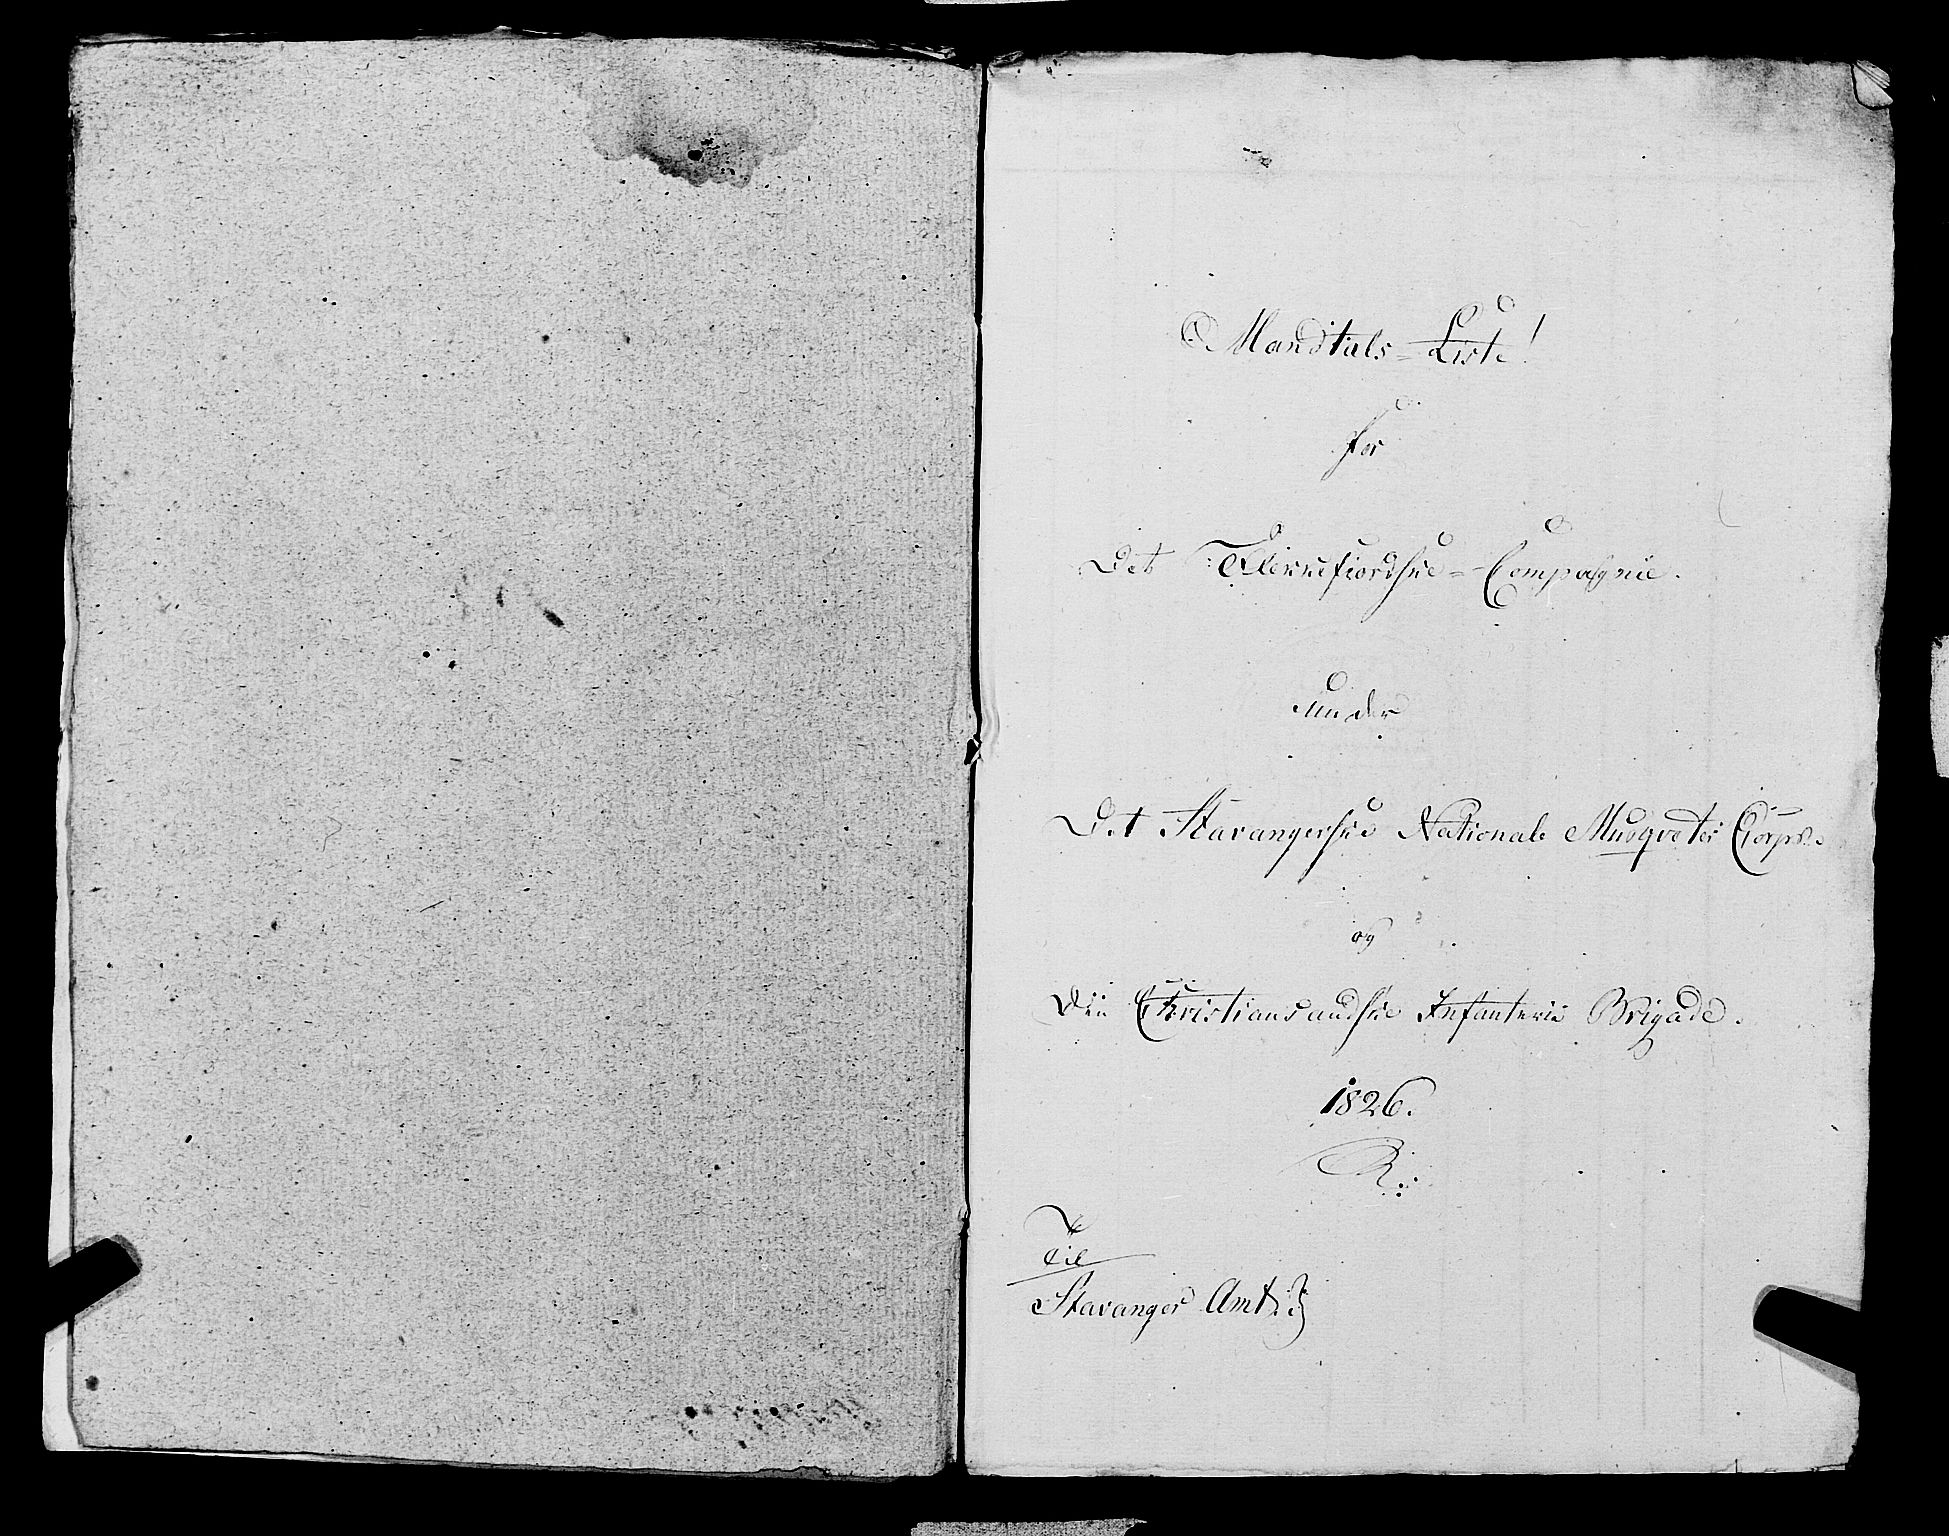 Mandtals-Liste!
for
Det Flekkefiordske-Compagnie.
under
Det Stavangerske Nationale Musqveteer Corps.
og
Den Christiansandske Infanterie Brigade.
1826.
Til
Stavanger Amt